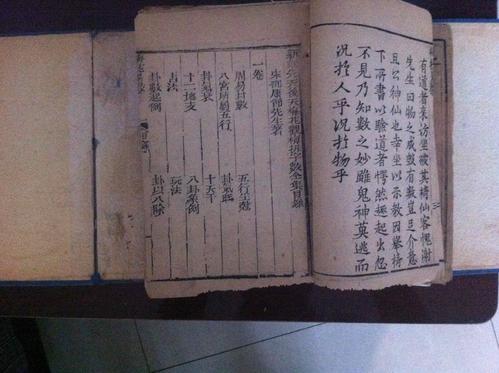 有道者來訪坐破其椅仙客愧謝
先生曰物之成毀有數豈足介意
且公神仙也幸坐以示教因舉椅
下所書以驗道者愕然趨起出忽
不見乃知數之妙雖鬼神莫逃而
況於人乎況於物乎
新先天後天梅花觀梅拆字數全集目錄
宋邵康節先生著
一卷
周易卦數 五行生剋
八宮所屬五行 卦氣旺
卦氣衰 十天干
十二地支 八卦象例
占法 玩法
卦數起例 卦以八除